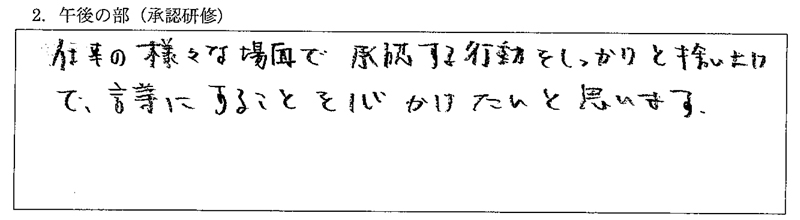 2. 午後の部（承認研修）
仕事の様々な場面で 承認する行動をしっかりと拾い上げ
て、言葉にすることを心がけたいと思います.